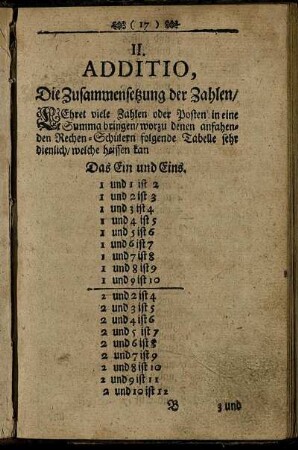 ( 17 )
II.
ADDITIO,
Die Zusammensetzung der Zahlen/
LEhret viele Zahlen oder Posten in eine
Summa bringen/ worzu denen anfahen-
den Rechen-Schülern folgende Tabelle sehr
dienlich/ welche heissen kan
Das Ein und Eins.
1 und 1 ist 2
1 und 2 ist 3
1 und 3 ist 4
1 und 4 ist 5
1 und 5 ist 6
1 und 6 ist 7
1 und 7 ist 8
1 und 8 ist 9
1 und 9 ist 10
2 und 2 ist 4
2 und 3 ist 5
2 und 4 ist 6
2 und 5 ist 7
2 und 6 ist 8
2 und 7 ist 9
2 und 8 ist 10
2 und 9 ist 11
2 und 10 ist 12
B 3 und